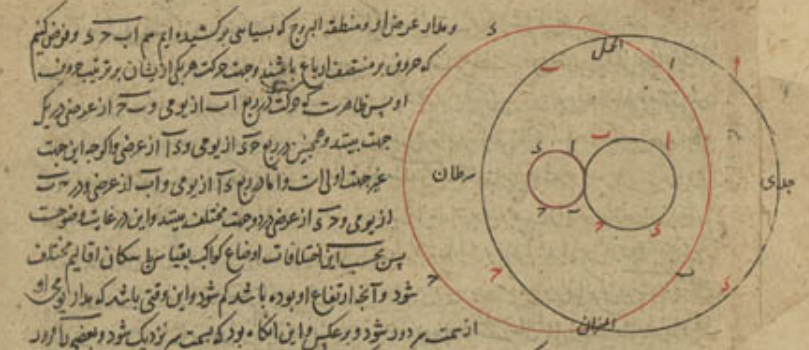 و مدار عرض او و منطقة البروج که بسیاهی برکشیده ایم هم ا ب ح د و فرض کنیم
که حروف بر منتصف ارباع باشند و جهت حرکت هر یکی ازیشان بر ترتیب حروف
او پس ظاهرست که حرکت در ربع ا ب از یومی و ب ح از عرضی در یک
جهت بیفتد و همچنین در ربع ح د از یومی و د ا از عرضی و اگرچه این جهت
غیر جهت اولی است و اما در ربع د ا از یومی و ا ب از عرضی و در ب ح
از یومی و ح د از عرضی در دو جهت مختلف بیفتد و این در غایت وضوحست
پس بحسب این اختلافات اوضاع کواکب بقیاس با سکان اقالیم مختلف
شود و آنچه ارتفاع او بوده باشد کم شود و این وقتی باشد که مدار یومی او
از سمت سر دور شود و بر عکس و این آنگاه بود که بسمت سر نزدیک شود و بعضی
الحمل
سرطان
جدی
المیزان
ا
ب
ح
د
ا
ب
ح
د
ا
ب
ح
د
ا
ب
ح
د